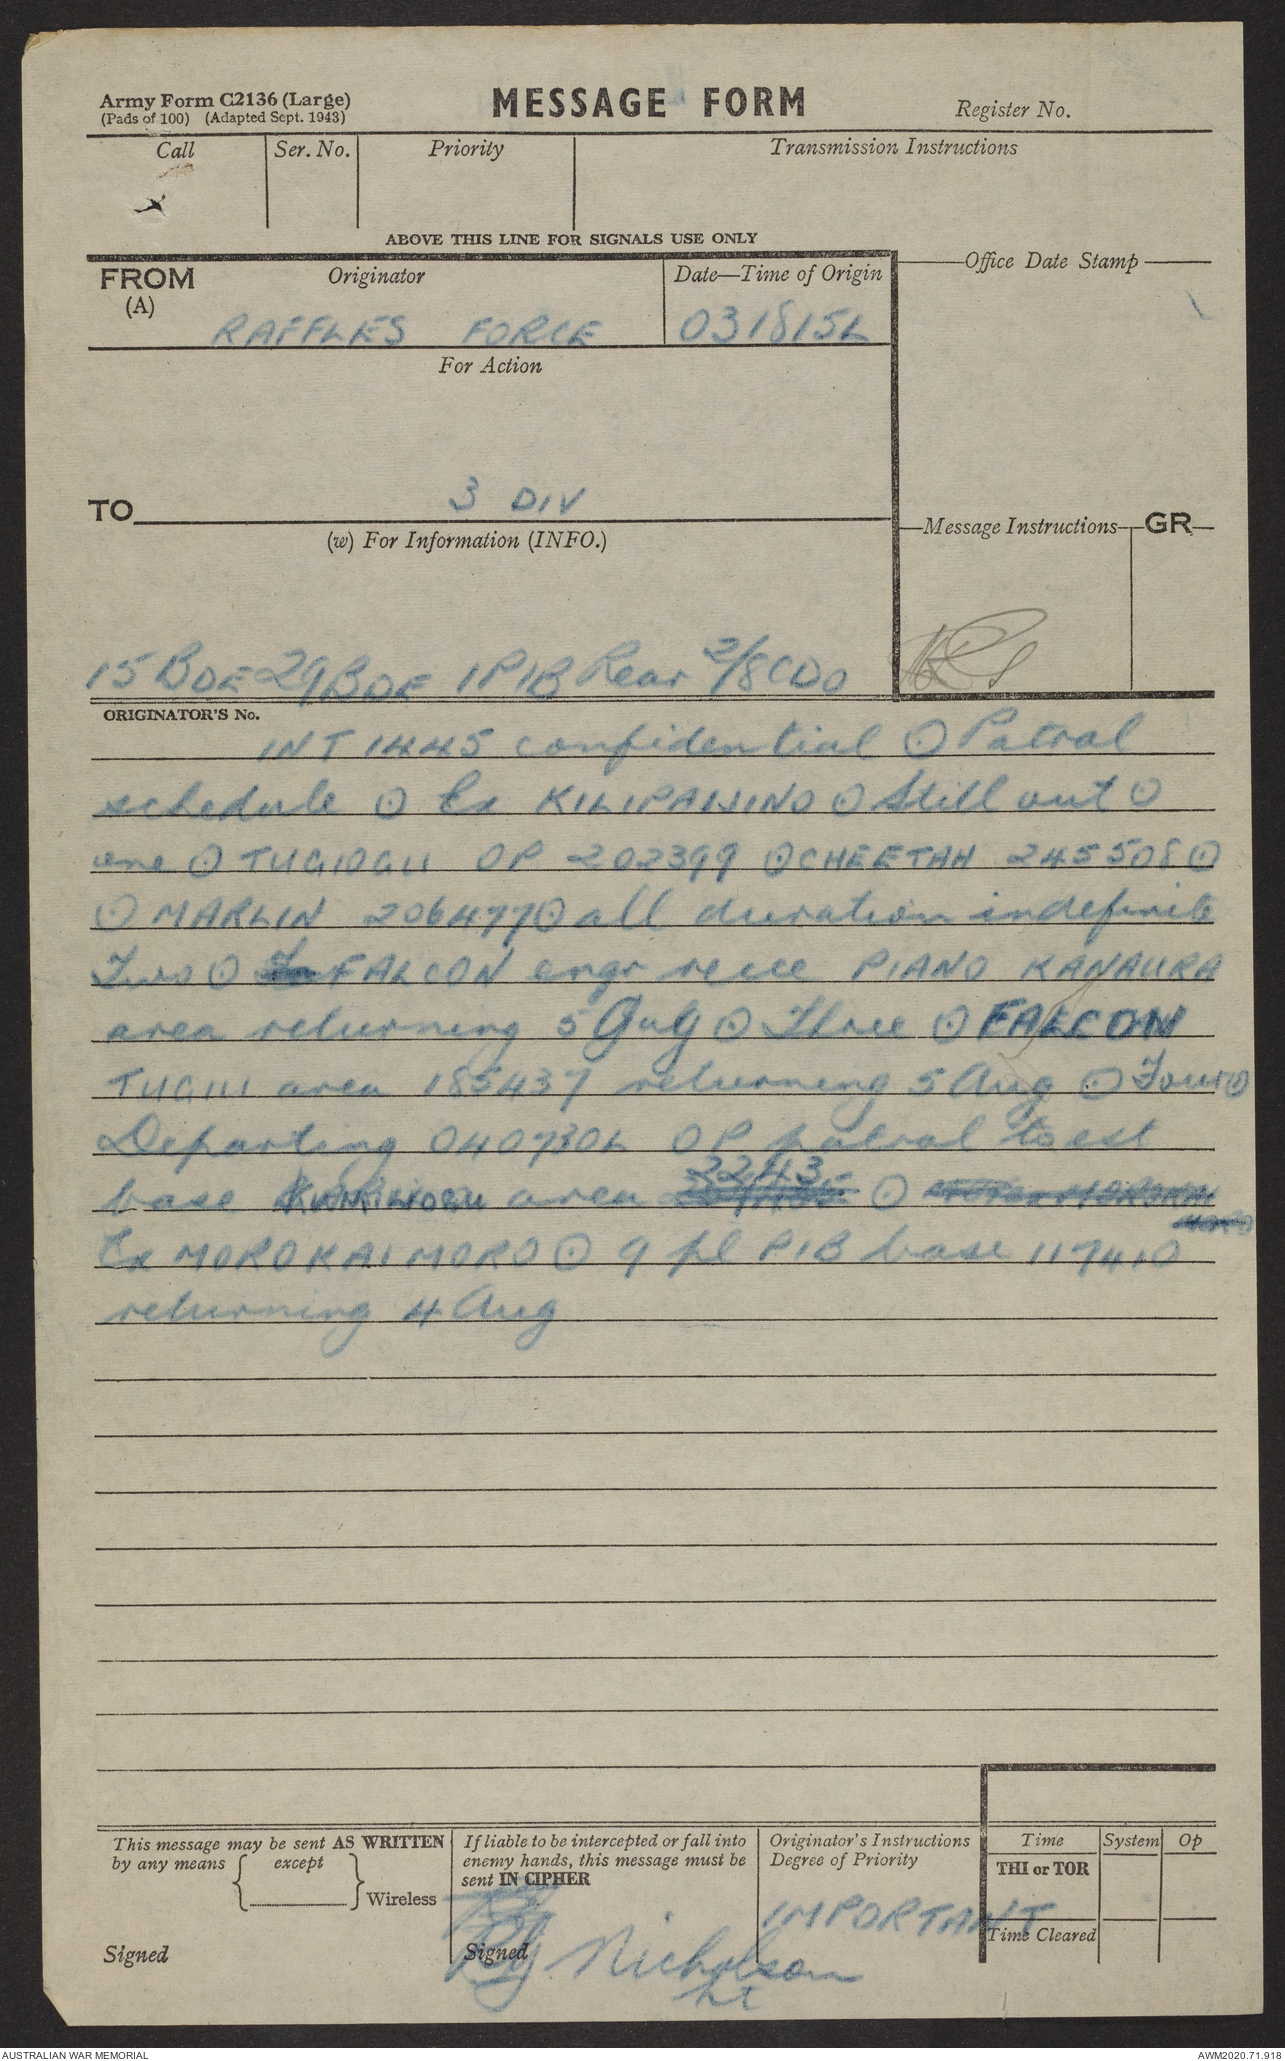 Army Form C2136 (Large)
(Pads of 100) (Adapted Sept. 1943)
MESSAGE FORM
Register No.
Call
Ser. No.
Priority
Transmission Instructions
ABOVE THIS LINE FOR SIGNALS USE ONLY
FROM
(A)
Originator
RAFFLES FORCE
Date—Time of Origin
031815L
Office Date Stamp
For Action
TO
3 DIV
(w) For Information (INFO.)
Message Instructions
GR
15 BDE 29 BDE 1 PIB Rear 2/8 CDO
ORIGINATOR'S No.
INT 1445 confidential ⊙ Patrol
schedule ⊙ Ex KILIPAIJINO ⊙ Still out ⊙
one ⊙ TUGIOGU OP 202399 ⊙ CHEETAH 245508 ⊙
⊙ MARLIN 206477 ⊙ all duration indefinite
Two ⊙ FALCON engr recce PIANO KANAURA
area returning 5 Aug ⊙ Three ⊙ FALCON
TUGIU area 185437 returning 5 Aug ⊙ Four ⊙
Departing 040730L OP patrol to est
base area 2243 ⊙
Ex MOROKAIMORO ⊙ 9 pl PIB base 117410
returning 4 Aug
This message may be sent AS WRITTEN
by any means
except
Wireless
Signed
If liable to be intercepted or fall into
enemy hands, this message must be
sent IN CIPHER
Signed
Nicholson
Lt
Originator's Instructions
Degree of Priority
IMPORTANT
Time
System
Op
THI or TOR
Time Cleared
AUSTRALIAN WAR MEMORIAL
AWM2020.71.918